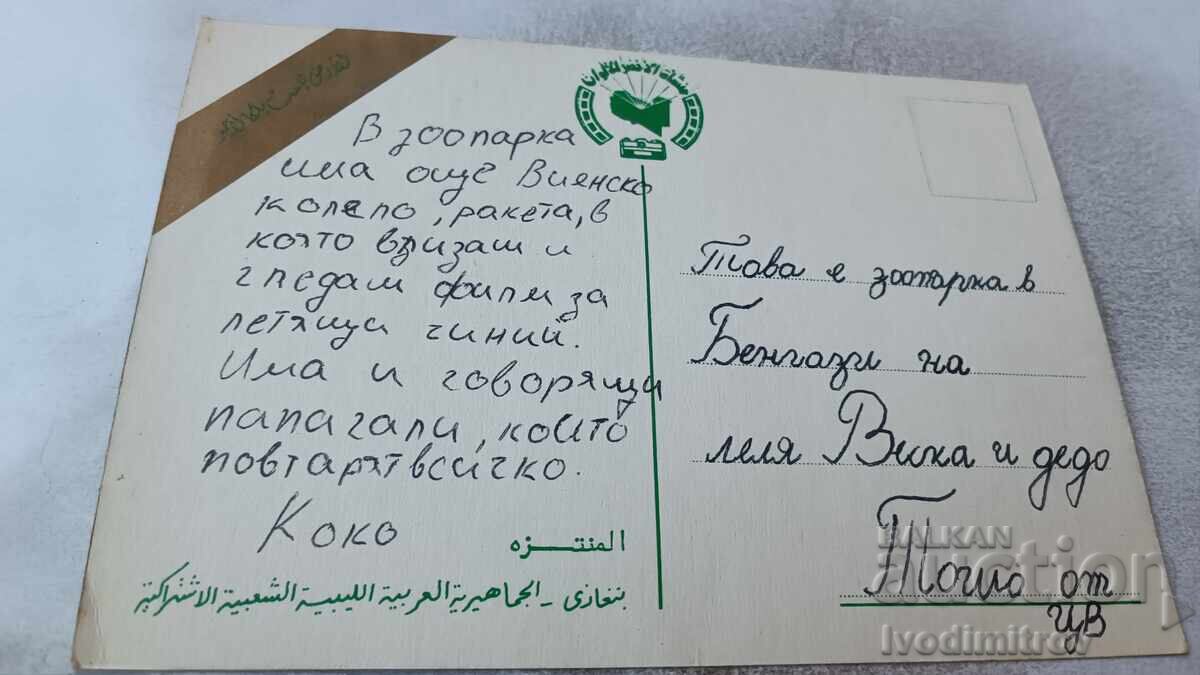 منشآت الأخضر للألوان
В зоопарка
има още Виенско
колело, ракета, в
която влизаш и
гледаш филм за
летящи чинии.
Има и говорящи
папагали, които
повтарят всичко.
Коко
المنتزه
بنغازى - الجماهيرية العربية الليبية الشعبية الاشتراكية
Това е зоопарка в
Бенгази на
леля Виска и дедо
Тошо от
ЦВ
BALKAN
auction
Ivodimitrov